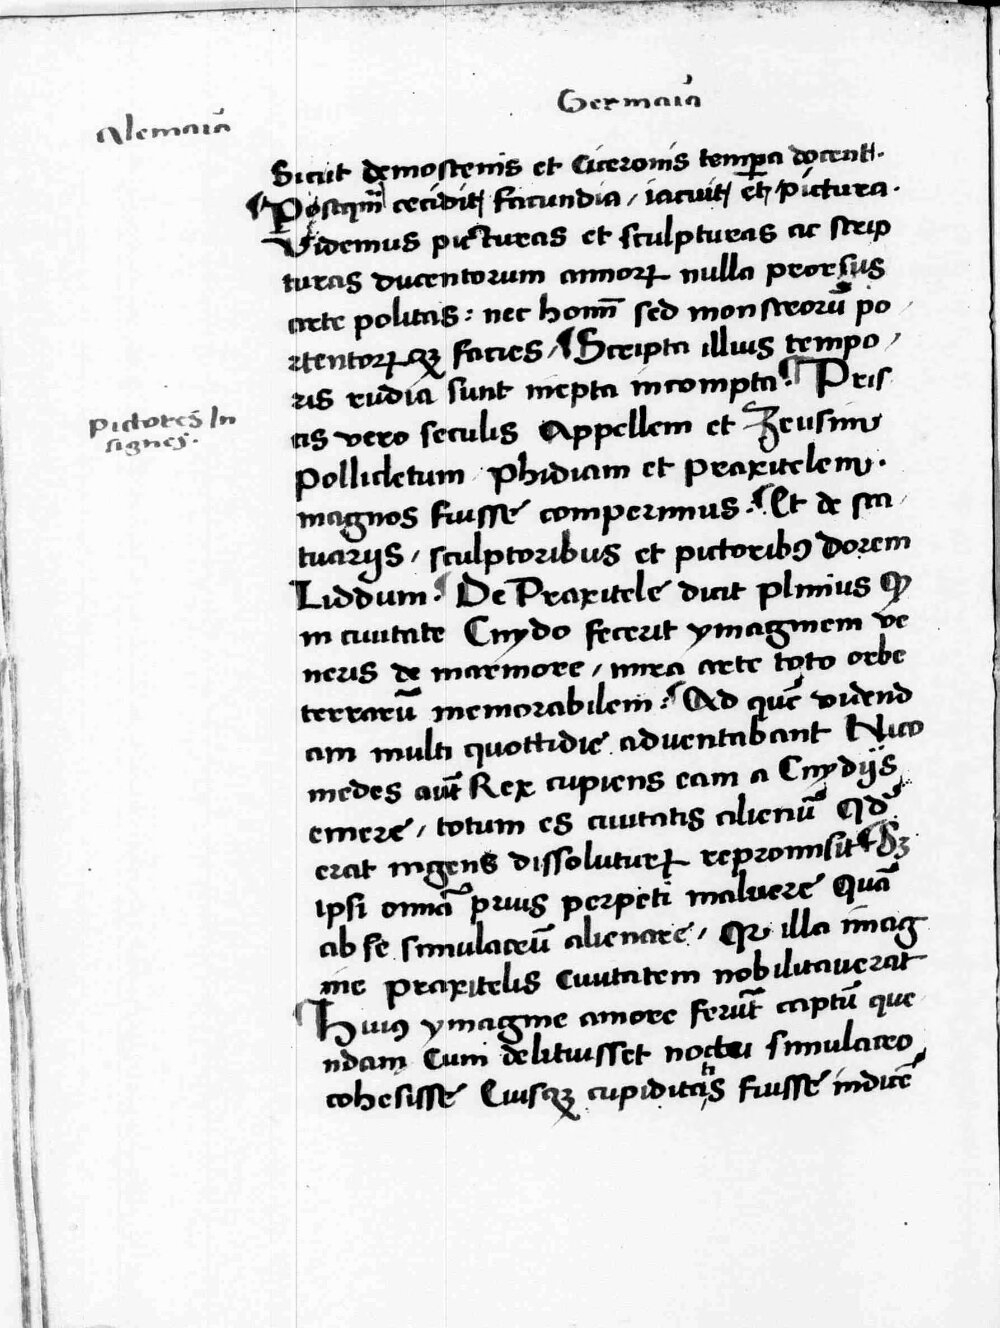 Germaıā
Alemaıā
Sicut demostenis et Ciceronis tempora docent.
Postqm̄ cecidit facundia / iacuit et pictura.
Videmus picturas et sculpturas ac scrip
turas ducentorum annoꝝ nulla prorsus
arte politas : nec homi͞ sed monstrorū po
rtentorꝝqꝫ facies / Scripta illius tempo
ris rudia sunt inepta incompta. Pris
cis vero seculis Appellem et Zeusim
Pictores In
signes.
Pollicletum Phidiam et praxitelem.
magnos fuisse comperimus. Et de sta
tuarijs / sculptoribus et pictoribꝰ dorem
Liddum. De Praxitele dicit plinius ꝙ
in ciuitate Cnydo fecerit ymaginem ve
neris de marmore / mira arte toto orbe
terrarū memorabilem : Ad quē vidend
am multi quottidie aduentabant Nico
medes aūt Rex cupiens eam a Cnydijs
emere / totum es ciuitatis alienū qd
erat ingens dissoluturꝝ repromisit Sꝫ
ipsi omīa prius perpeti maluere quā
ab se simulacrū alienare / Qr illa imag
ine praxitelis Ciuitatem nobilitauerat
Huiꝰ ymagine amore ferūt captū que
ndam Cum delituisset noctu simulacro
cohesisse Eiusqꝫ cupiditatis fuisse indicē